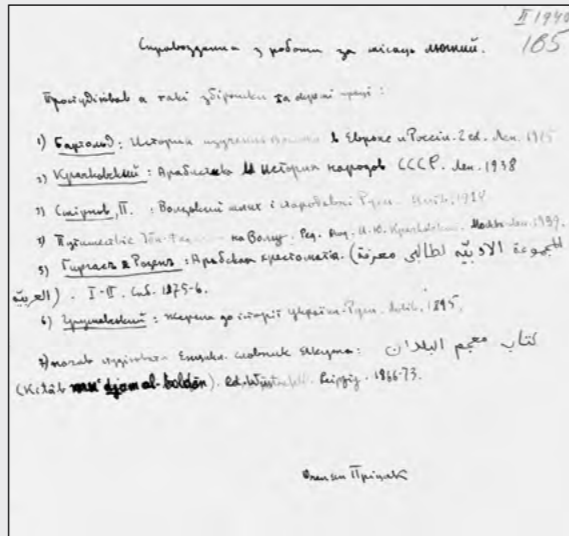 II 1940
165
Справоздання з роботи за місяць лютий.
Простудіював я такі збірники та окремі праці:
1) Бартольд: История изучения Востока в Европе и России. 2 ed. Лен. 1925
2) Крачковский: Арабистика и История народов СССР. Лен. 1938
3) Смірнов, П.: Волзький шлях і стародавні Руси. Київ, 1928
4) Путешествие Ибн-Фадлана на Волгу. Ред. Акад. И. Ю. Крачковского. Москва-Лен. 1939.
5) Гиргасъ и Розенъ: Арабская хрестоматія. (المجموعة الادبيّه لطالبى معرفة
العربيّه). I-II. Спб. 1875-6.
6) Грушевський: Жерела до історії України-Руси. Львів, 1895.
7) почав студіювати Енцикл. словник Якута: كتاب معجم البلدان
(Kitâb mu'djam al-boldân). ed. Wüstenfeld. Leipzig. 1866-73.
Омелян Пріцак